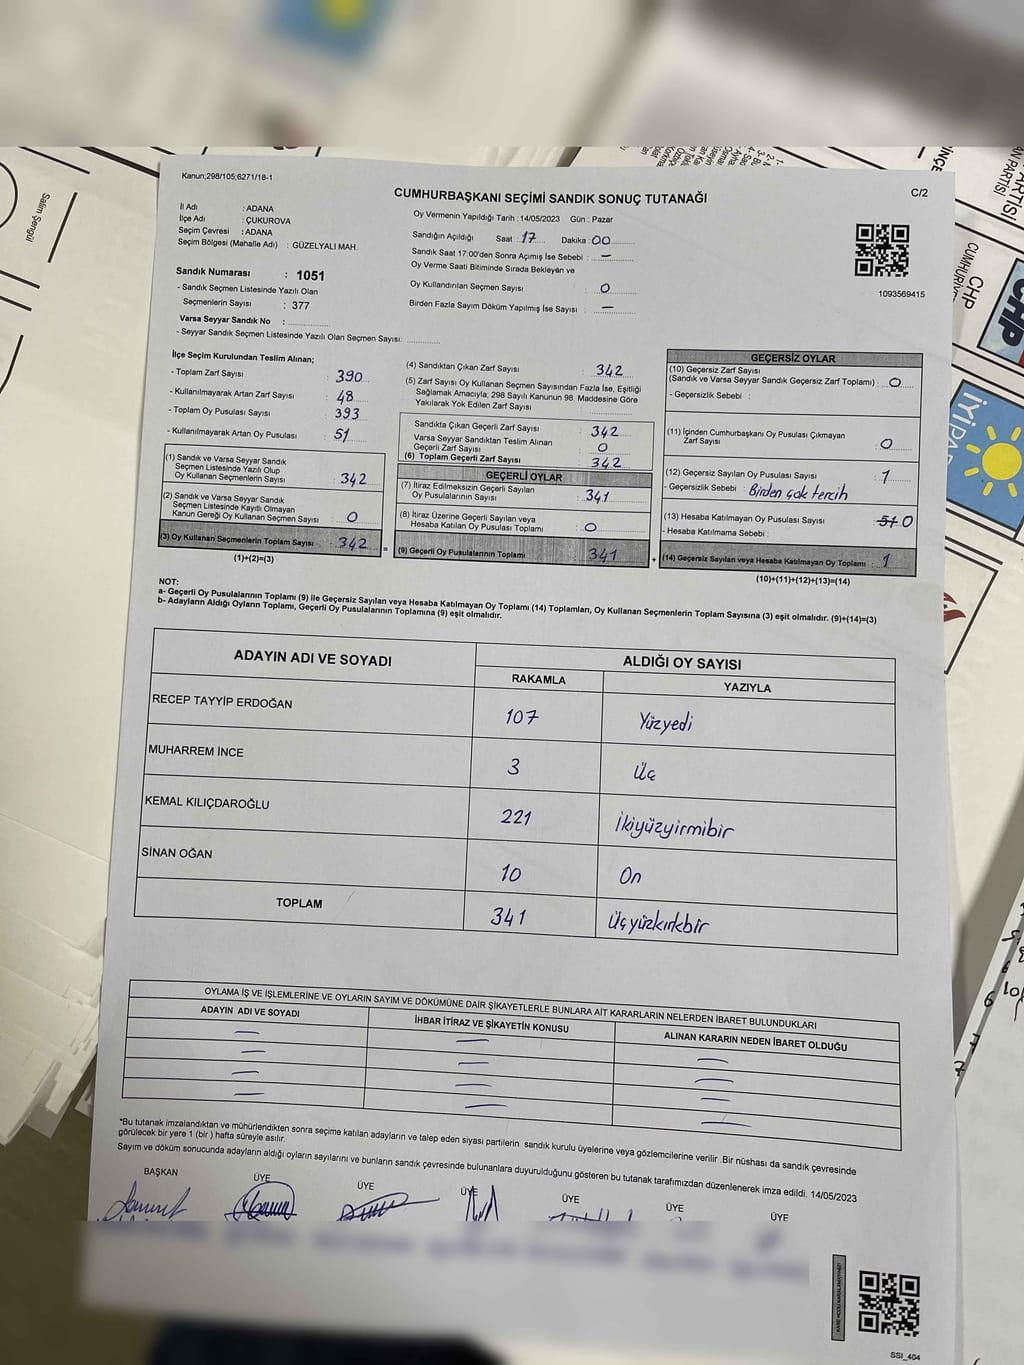 Kanun;298/105;6271/18-1
C/2
CUMHURBAŞKANI SEÇİMİ SANDIK SONUÇ TUTANAĞI
İl Adı : ADANA
İlçe Adı : ÇUKUROVA
Seçim Çevresi : ADANA
Seçim Bölgesi (Mahalle Adı) : GÜZELYALI MAH.
Sandık Numarası : 1051
- Sandık Seçmen Listesinde Yazılı Olan
Seçmenlerin Sayısı : 377
Varsa Seyyar Sandık No :
- Seyyar Sandık Seçmen Listesinde Yazılı Olan Seçmen Sayısı:
Oy Vermenin Yapıldığı Tarih : 14/05/2023 Gün : Pazar
Sandığın Açıldığı Saat : 17 Dakika : 00
Sandık Saat 17:00'den Sonra Açımış İse Sebebi : –
Oy Verme Saati Bitiminde Sırada Bekleyen ve
Oy Kullandırılan Seçmen Sayısı : 0
Birden Fazla Sayım Döküm Yapılmış İse Sayısı : –
1093569415
İlçe Seçim Kurulundan Teslim Alınan;
- Toplam Zarf Sayısı : 390
- Kullanılmayarak Artan Zarf Sayısı : 48
- Toplam Oy Pusulası Sayısı : 393
- Kullanılmayarak Artan Oy Pusulası : 51
(1) Sandık ve Varsa Seyyar Sandık
Seçmen Listesinde Yazılı Olup
Oy Kullanan Seçmenlerin Sayısı : 342
(2) Sandık ve Varsa Seyyar Sandık
Seçmen Listesinde Kayıtlı Olmayan
Kanun Gereği Oy Kullanan Seçmen Sayısı : 0
(3) Oy Kullanan Seçmenlerin Toplam Sayısı : 342
(1)+(2)=(3)
(4) Sandıktan Çıkan Zarf Sayısı : 342
(5) Zarf Sayısı Oy Kullanan Seçmen Sayısından Fazla İse, Eşitliği
Sağlamak Amacıyla; 298 Sayılı Kanunun 98. Maddesine Göre
Yakılarak Yok Edilen Zarf Sayısı :
Sandıkta Çıkan Geçerli Zarf Sayısı : 342
Varsa Seyyar Sandıktan Teslim Alınan
Geçerli Zarf Sayısı : 0
(6) Toplam Geçerli Zarf Sayısı : 342
GEÇERLİ OYLAR
(7) İtiraz Edilmeksizin Geçerli Sayılan
Oy Pusulalarının Sayısı : 341
(8) İtiraz Üzerine Geçerli Sayılan veya
Hesaba Katılan Oy Pusulası Toplamı : 0
= (9) Geçerli Oy Pusulalarının Toplamı : 341 +
GEÇERSİZ OYLAR
(10) Geçersiz Zarf Sayısı
(Sandık ve Varsa Seyyar Sandık Geçersiz Zarf Toplamı) : 0
- Geçersizlik Sebebi :
(11) İçinden Cumhurbaşkanı Oy Pusulası Çıkmayan
Zarf Sayısı : 0
(12) Geçersiz Sayılan Oy Pusulası Sayısı : 1
- Geçersizlik Sebebi : Birden çok tercih
(13) Hesaba Katılmayan Oy Pusulası Sayısı : 51 0
- Hesaba Katılmama Sebebi :
(14) Geçersiz Sayılan veya Hesaba Katılmayan Oy Toplamı : 1
(10)+(11)+(12)+(13)=(14)
NOT:
a- Geçerli Oy Pusulalarının Toplamı (9) ile Geçersiz Sayılan veya Hesaba Katılmayan Oy Toplamı (14) Toplamları, Oy Kullanan Seçmenlerin Toplam Sayısına (3) eşit olmalıdır. (9)+(14)=(3)
b- Adayların Aldığı Oyların Toplamı, Geçerli Oy Pusulalarının Toplamına (9) eşit olmalıdır.
ADAYIN ADI VE SOYADI
ALDIĞI OY SAYISI
RAKAMLA YAZIYLA
RECEP TAYYİP ERDOĞAN 107 Yüzyedi
MUHARREM İNCE 3 Üç
KEMAL KILIÇDAROĞLU 221 İkiyüzyirmibir
SİNAN OĞAN 10 On
TOPLAM 341 Üçyüzkırkbir
OYLAMA İŞ VE İŞLEMLERİNE VE OYLARIN SAYIM VE DÖKÜMÜNE DAİR ŞİKAYETLERLE BUNLARA AİT KARARLARIN NELERDEN İBARET BULUNDUKLARI
ADAYIN ADI VE SOYADI İHBAR İTİRAZ VE ŞİKAYETİN KONUSU ALINAN KARARIN NEDEN İBARET OLDUĞU
– – –
– – –
– – –
– – –
*Bu tutanak imzalandıktan ve mühürlendikten sonra seçime katılan adayların ve talep eden siyasi partilerin sandık kurulu üyelerine veya gözlemcilerine verilir .Bir nüshası da sandık çevresinde
görülecek bir yere 1 (bir ) hafta süreyle asılır.
Sayım ve döküm sonucunda adayların aldığı oyların sayılarını ve bunların sandık çevresinde bulunanlara duyurulduğunu gösteren bu tutanak tarafımızdan düzenlenerek imza edildi. 14/05/2023
BAŞKAN ÜYE ÜYE ÜYE ÜYE ÜYE ÜYE
SSI_404
Salim Şengül
CHP
CUMHURİYE
CHP
İYİ PAR